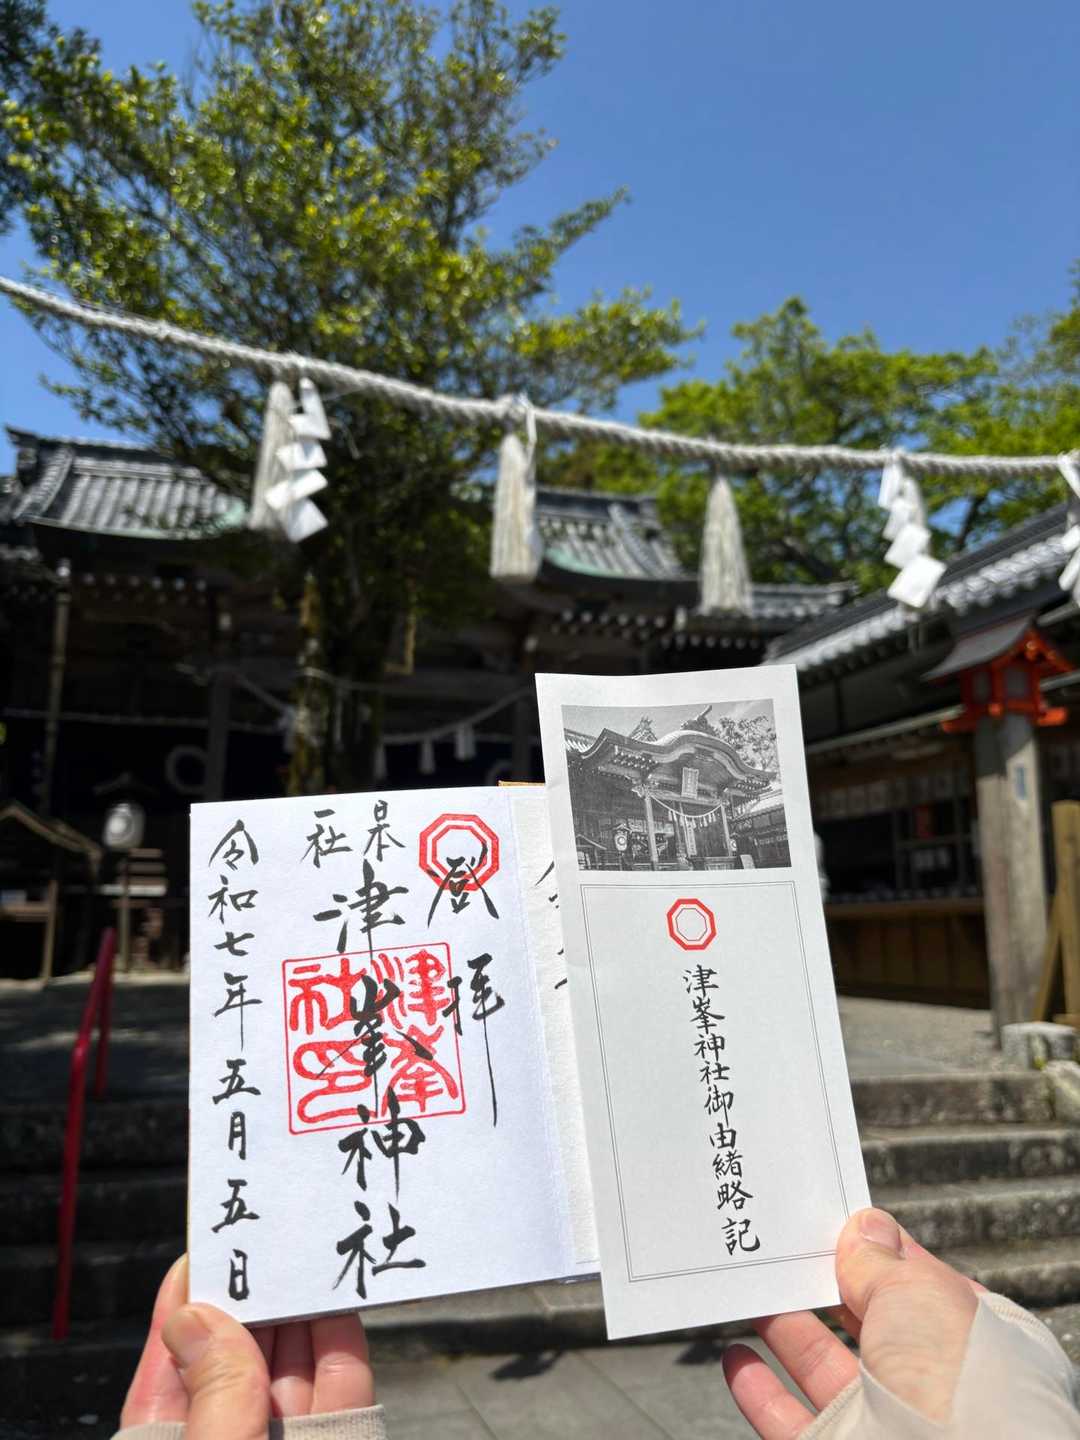 登拝
日本
一社
津峯神社
津峯
社印
令和七年五月五日
津峯神社御由緒略記